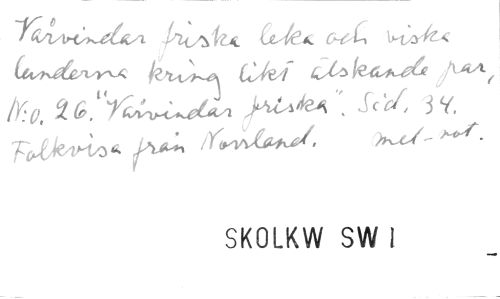 Vårvindar friska leka och viska
lunderna kring likt älskande par,
N:o. 26. "Vårvindar friska". Sid. 34.
Folkvisa från Norrland. mel-not.
SKOLKW SW I